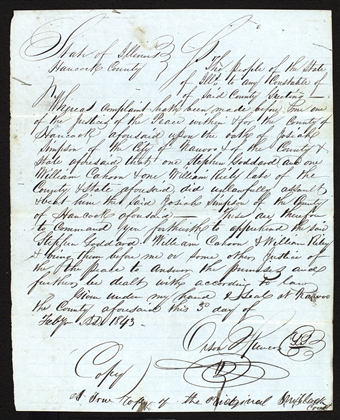 State of Illinois
Hancock County
The people of the State
of Ills. to any Constable
of said County Greeting —
Whereas complaint hath been made before me one
of the justices of the Peace within & for the County of
Hancock aforesaid upon the oath of Josiah
Simpson of the City of Nauvoo & of the County &
State aforesaid that one Stephen Goddard and one
William Cahoon & one William Riley late of the
County & State aforesaid did unlawfully assault
& beat him the said Josiah Simpson of the County
of Hancock aforesaid — These are therefore
to command you forthwith to apprehend the said
Stephen Goddard William Cahoon & William Riley
& bring them before me or some other Justice of
the Peace to answer the premises and
further be dealt with according to law
Given under my hand & Seal at Nauvoo
the County aforesaid this day of
Feby AD. 1843.
Orson
Copy
A True Copy of the Original